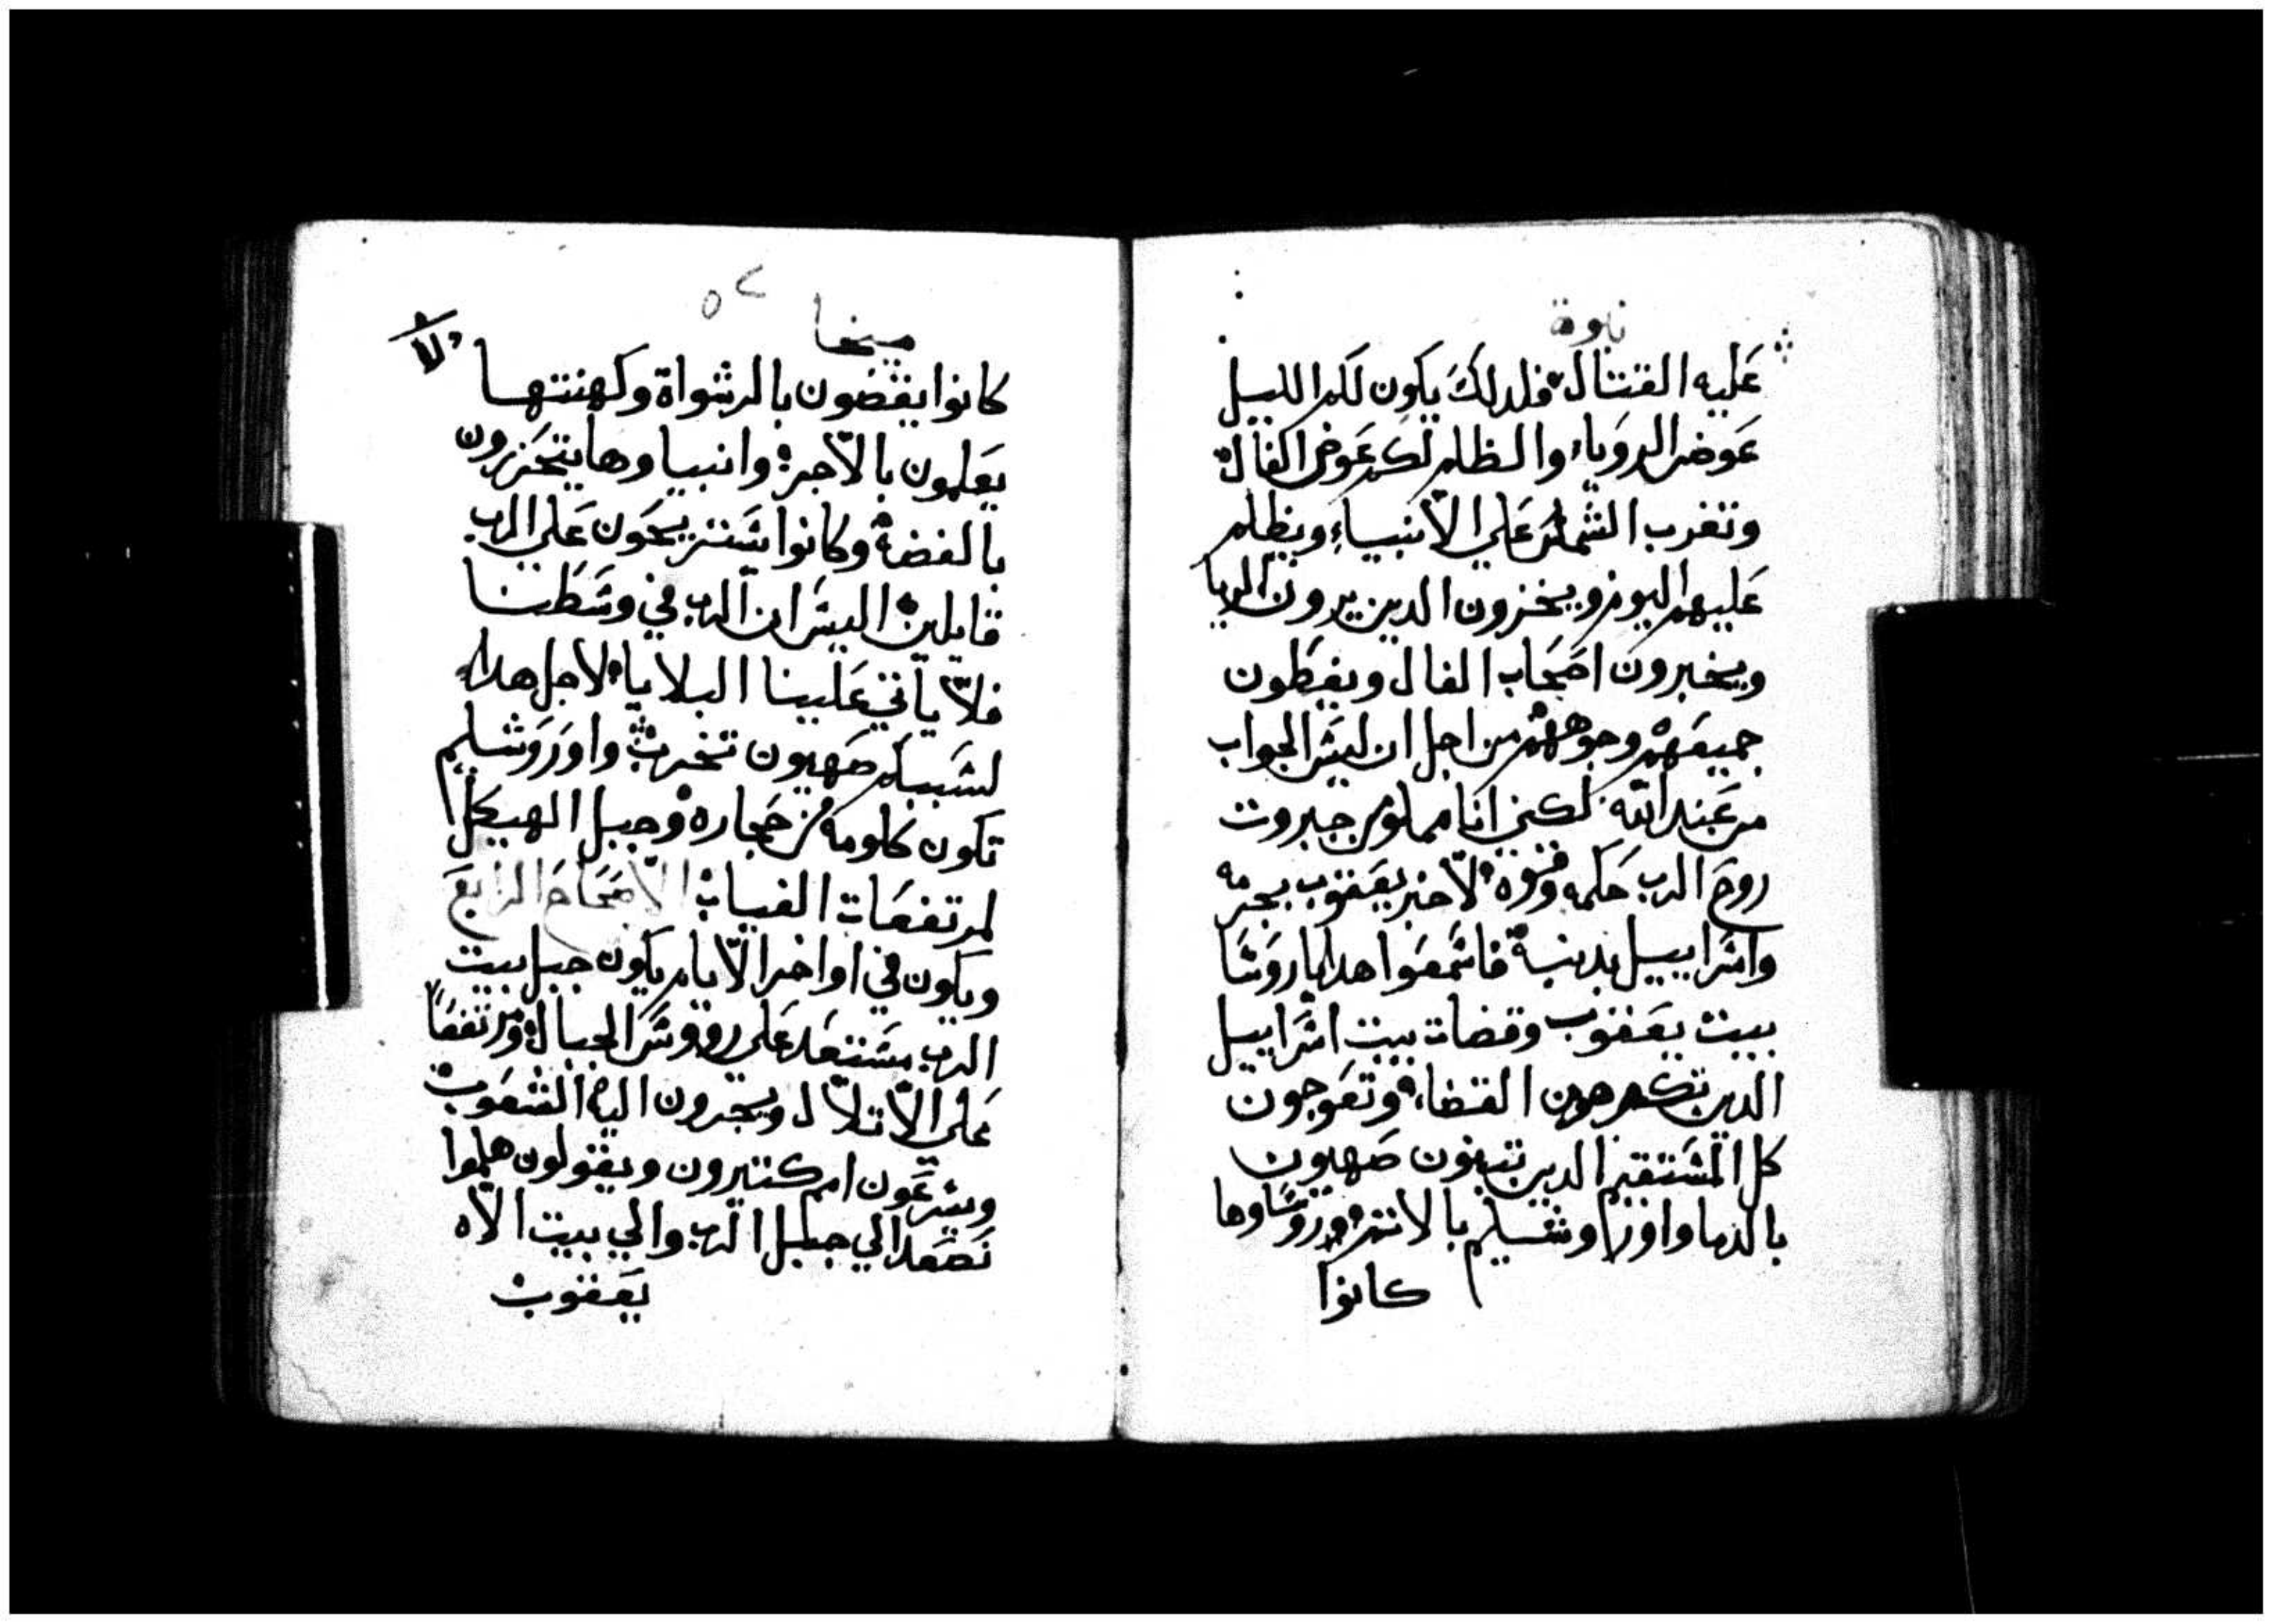 نبوة
عليه القتال فلدلك يكون لكم الليل
عوض الرويا والظلام لكم عوض الفال
وتغرب الشمس علي الانبياء ويظلم
عليهم اليوم ويخزون الدين يرون الرويا
ويخبرون اصحاب الفال ويغطون
جميعهم وجوههم من اجل ان ليس الجواب
من عند الله لكني انا مملو من جبروت
روح الرب حكمه وقوه لاخبر يعقوب بجرمه
واسراييل بدنبه فاسمعوا هدا يا روسا
بيت يعقوب وقضات بيت اسراييل
الدين تكرهون القضاء وتعوجون
كل المستقيم الدين تبنون صهيون
بالدما واورا وشليم بالاتم وروساوها
كانوا
ميخا
٥٢
كانوا يقضون بالرشواة وكهنتها
يعلمون بالاجرة وانبياوها يتحزرون
بالفضة وكانوا يستريحون علي الرب
قايلين اليس ان الرب في وسطنا
فلا ياتي علينا البلايا لاجل هدا
لسببكم صهيون تخرب واوروشليم
تكون كاومة من حجاره وجبل الهيكل
لمرتفعات الغياب الاصحاح الرابع
ويكون في اواخر الايام يكون جبل بيت
الرب مستعد علي رووس الجبال ومرتفعا
علي الاتلال ويجرون اليه الشعوب
ويسرعون امم كتيرون ويقولون هلموا
نصعد الي جبل الرب والي بيت الاه
يعقوب